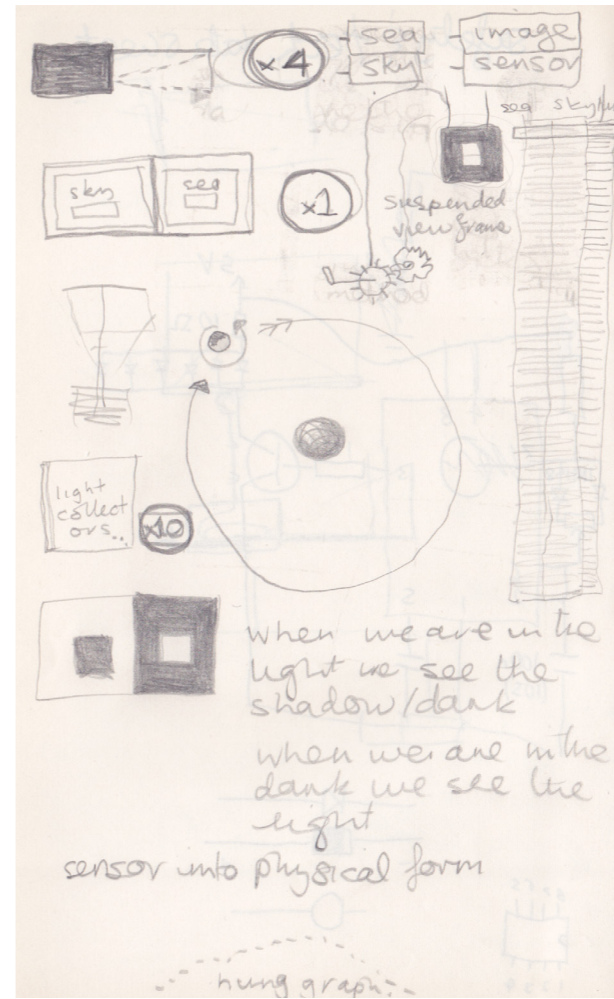 x4
sea
sky
image
sensor
sea sky
sky
sea
x1
suspended
view frame
light
collect
ors..
x10
when we are in the
light we see the
shadow/dark
when we are in the
dark we see the
light
sensor into physical form
hung graph